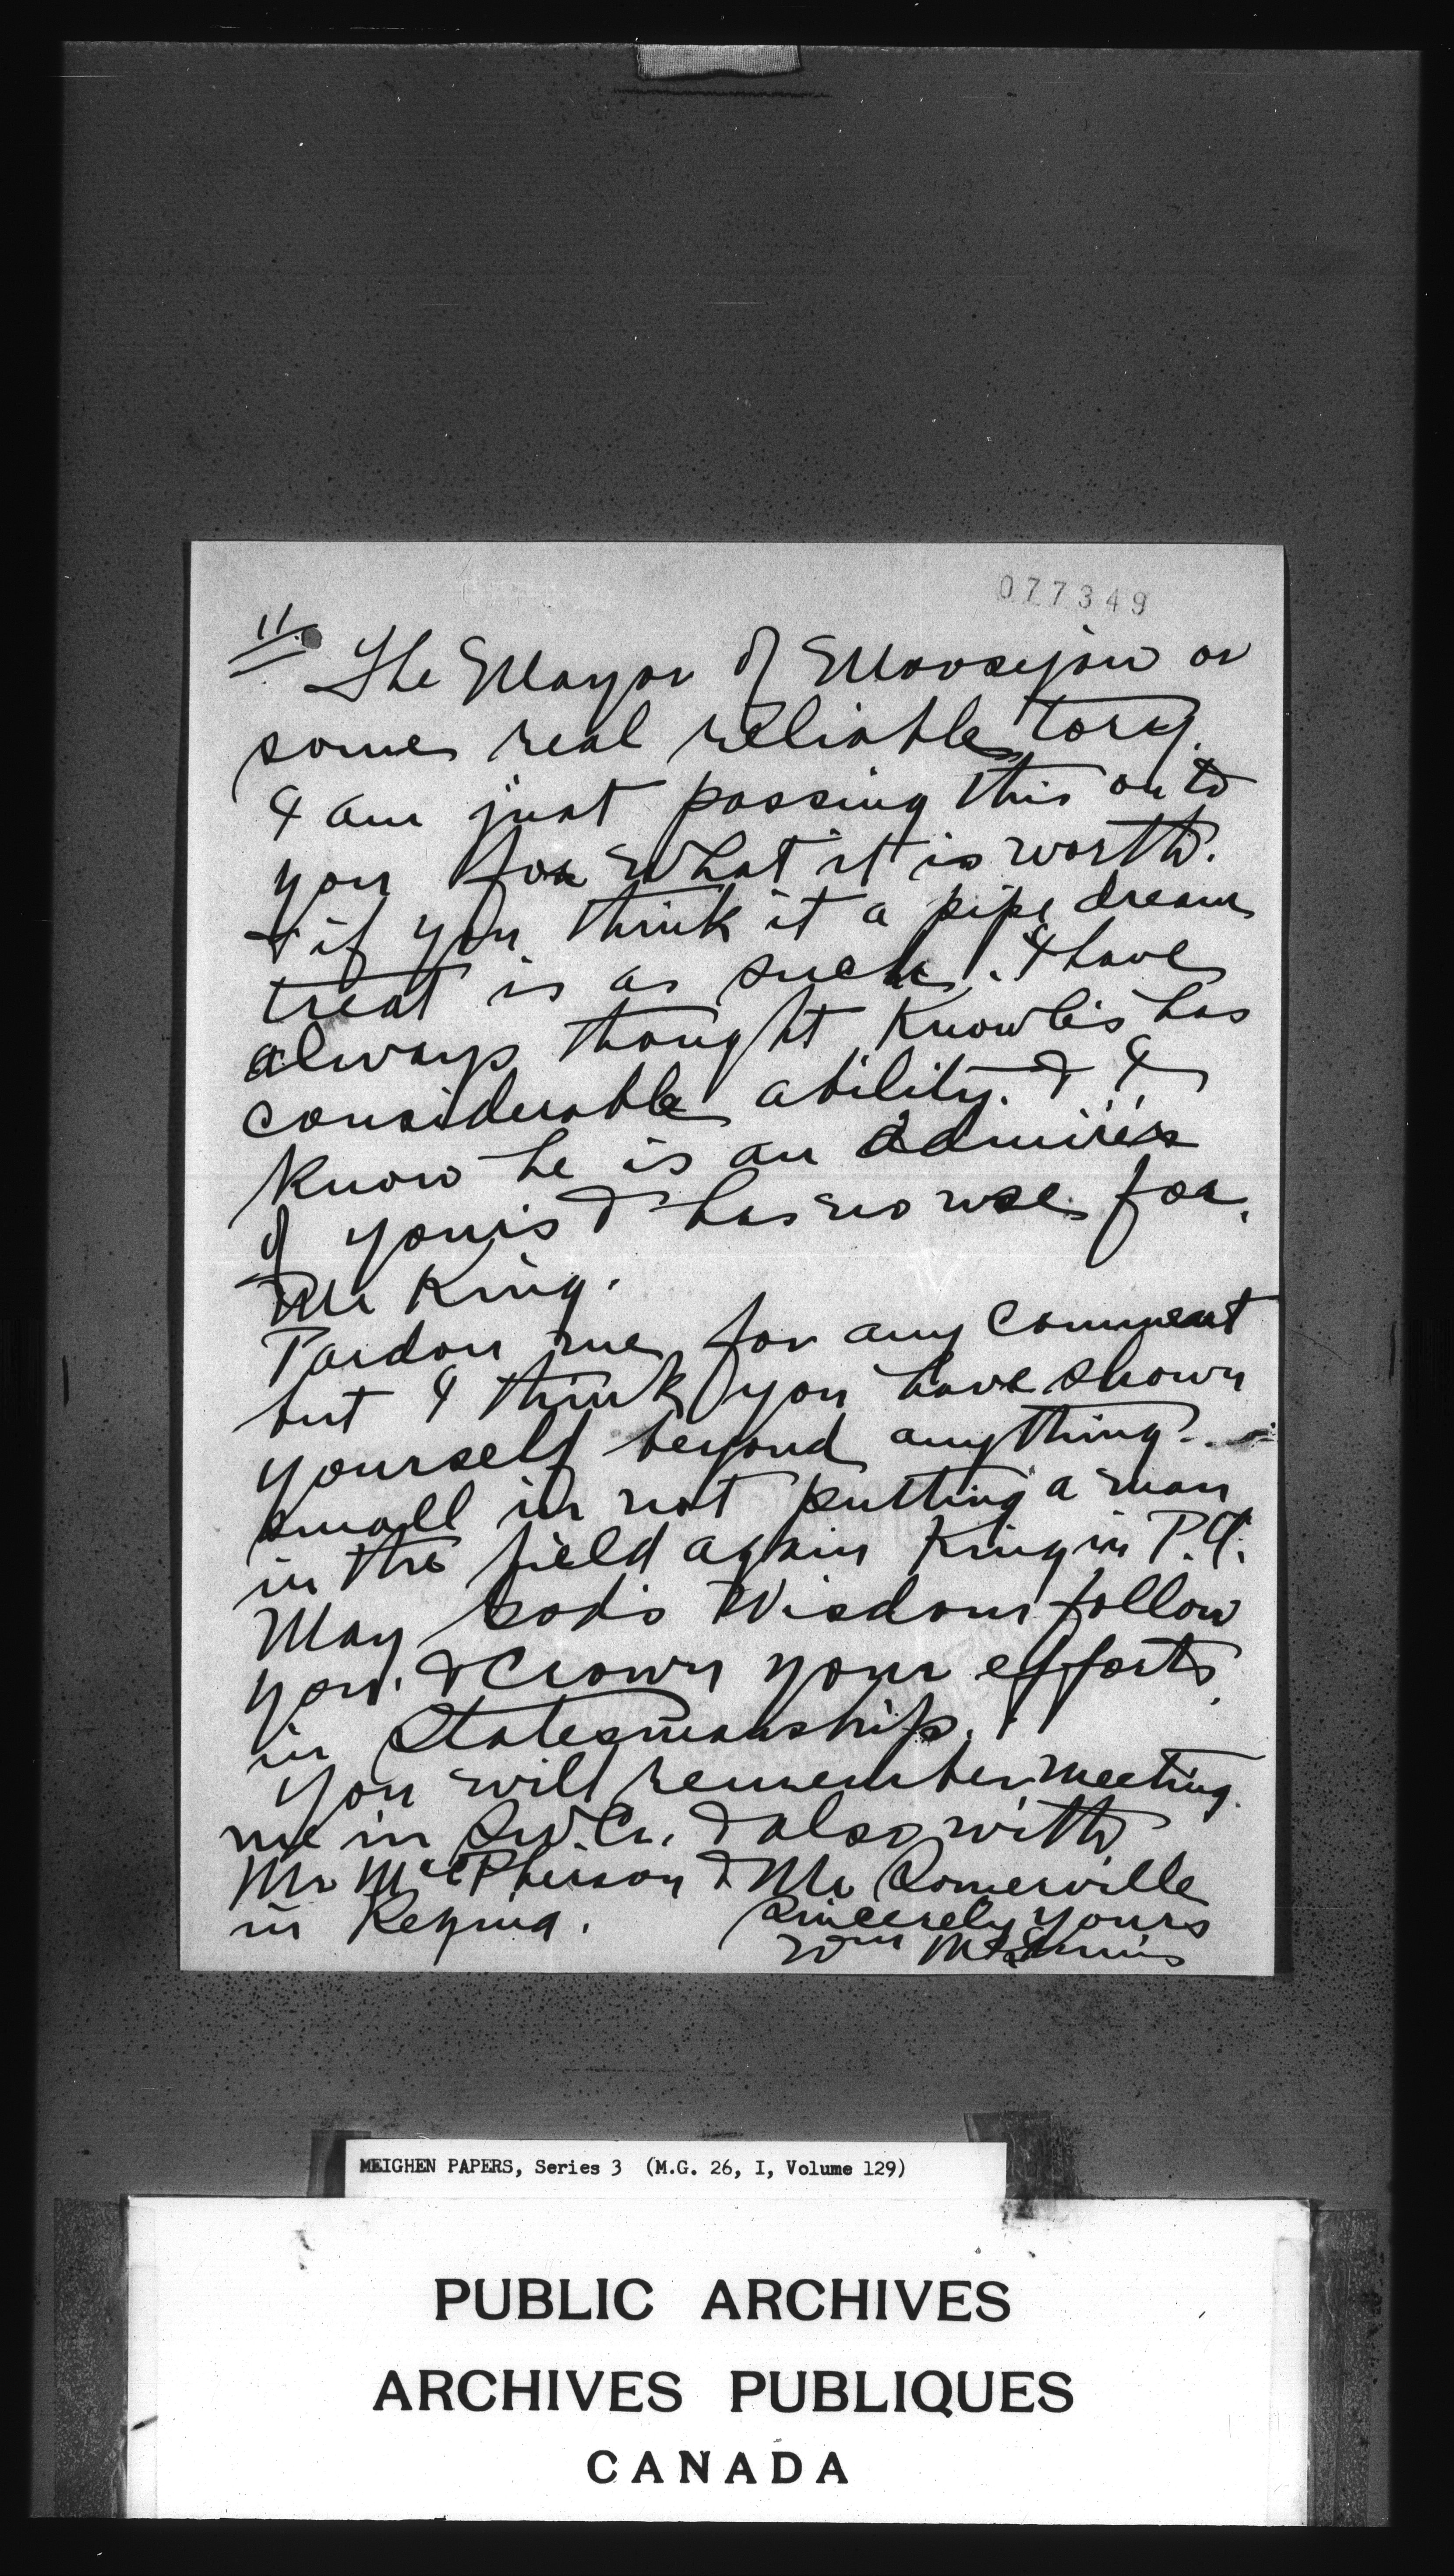 077349
11.
The Mayor of Moosejaw or
some real reliable tory.
I am just passing this on to
you for what it is worth.
& if you think it a pipe dream
treat is as such. I have
always thought Knowles has
considerable ability. & I
know he is an admirer
of yours & has no use for
Mr King.
Pardon me for any comment
but I think you have shown
yourself beyond anything
small in not putting a man
in the field again King in P.A.
May God's Wisdom follow
you. & Crown your efforts
in Statesmanship.
You will remember meeting
me in Sw. Cr. & also with
Mr McPherson & Mr Somerville
in Regina.
Sincerely yours
Wm
MEIGHEN PAPERS, Series 3 (M.G. 26, I, Volume 129)
PUBLIC ARCHIVES
ARCHIVES PUBLIQUES
CANADA